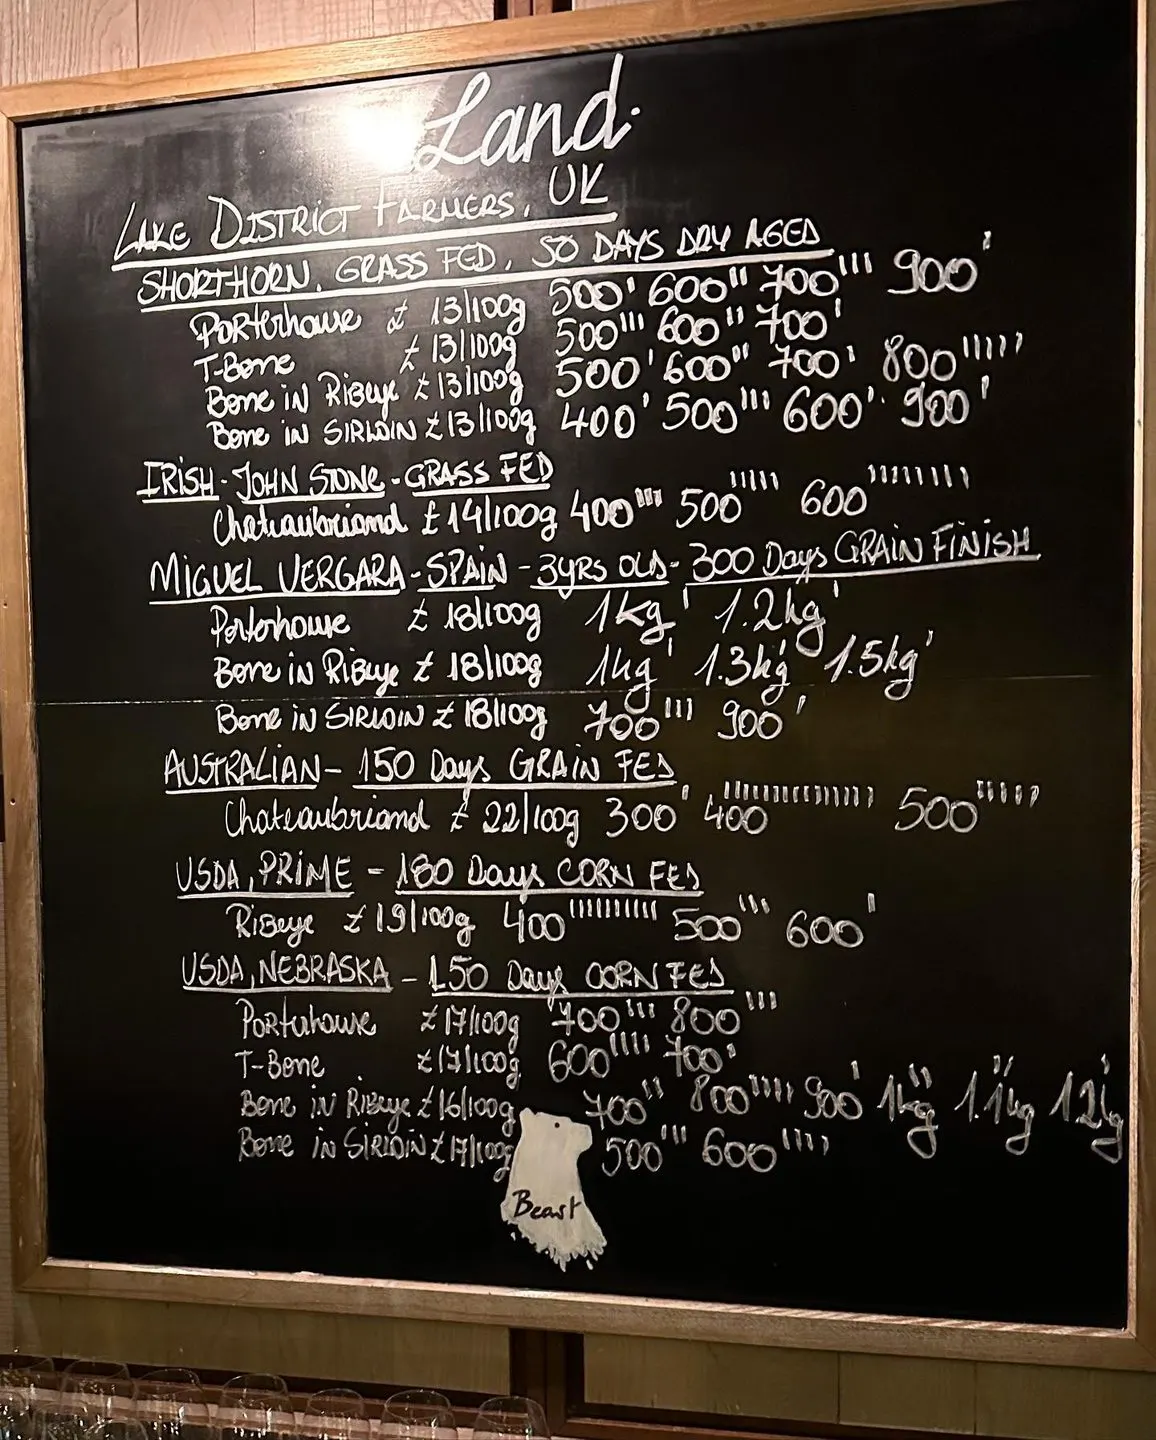 Land.
LAKE DISTRICT FARMERS, UK
SHORTHORN, GRASS FED, 50 DAYS DRY AGED
Porterhouse £ 13/100g 500' 600'' 700''' 900'
T-Bone £ 13/100g 500''' 600'' 700'
Bone in Ribeye £ 13/100g 500' 600''' 700' 800'''''
Bone in SIRLOIN £13/100g 400' 500''' 600'' 900'
IRISH - JOHN STONE - GRASS FED
Chateaubriand £ 14/100g 400''' 500''''' 600'''''''''
MIGUEL VERGARA - SPAIN - 3YRS OLD - 300 Days GRAIN FINISH
Porterhouse £ 18/100g 1kg' 1.2kg'
Bone in Ribeye £ 18/100g 1kg' 1.3kg' 1.5kg'
Bone in SIRLOIN £ 18/100g 700''' 900'
AUSTRALIAN - 150 Days GRAIN FED
Chateaubriand £ 22/100g 300' 400'''''''''''''''' 500''''''
USDA, PRIME - 180 Days CORN FED
Ribeye £ 19/100g 400'''''''''' 500''' 600'
USDA, NEBRASKA - 150 Days CORN FED
Porterhouse £ 17/100g 700''' 800'''
T-Bone £17/100g 600'''' 700'
Bone in Ribeye £ 16/100g 700'' 800''''' 900' 1kg'' 1.1kg'' 1.2kg'
Bone in SIRLOIN £17/100g 500''' 600''''
Beast